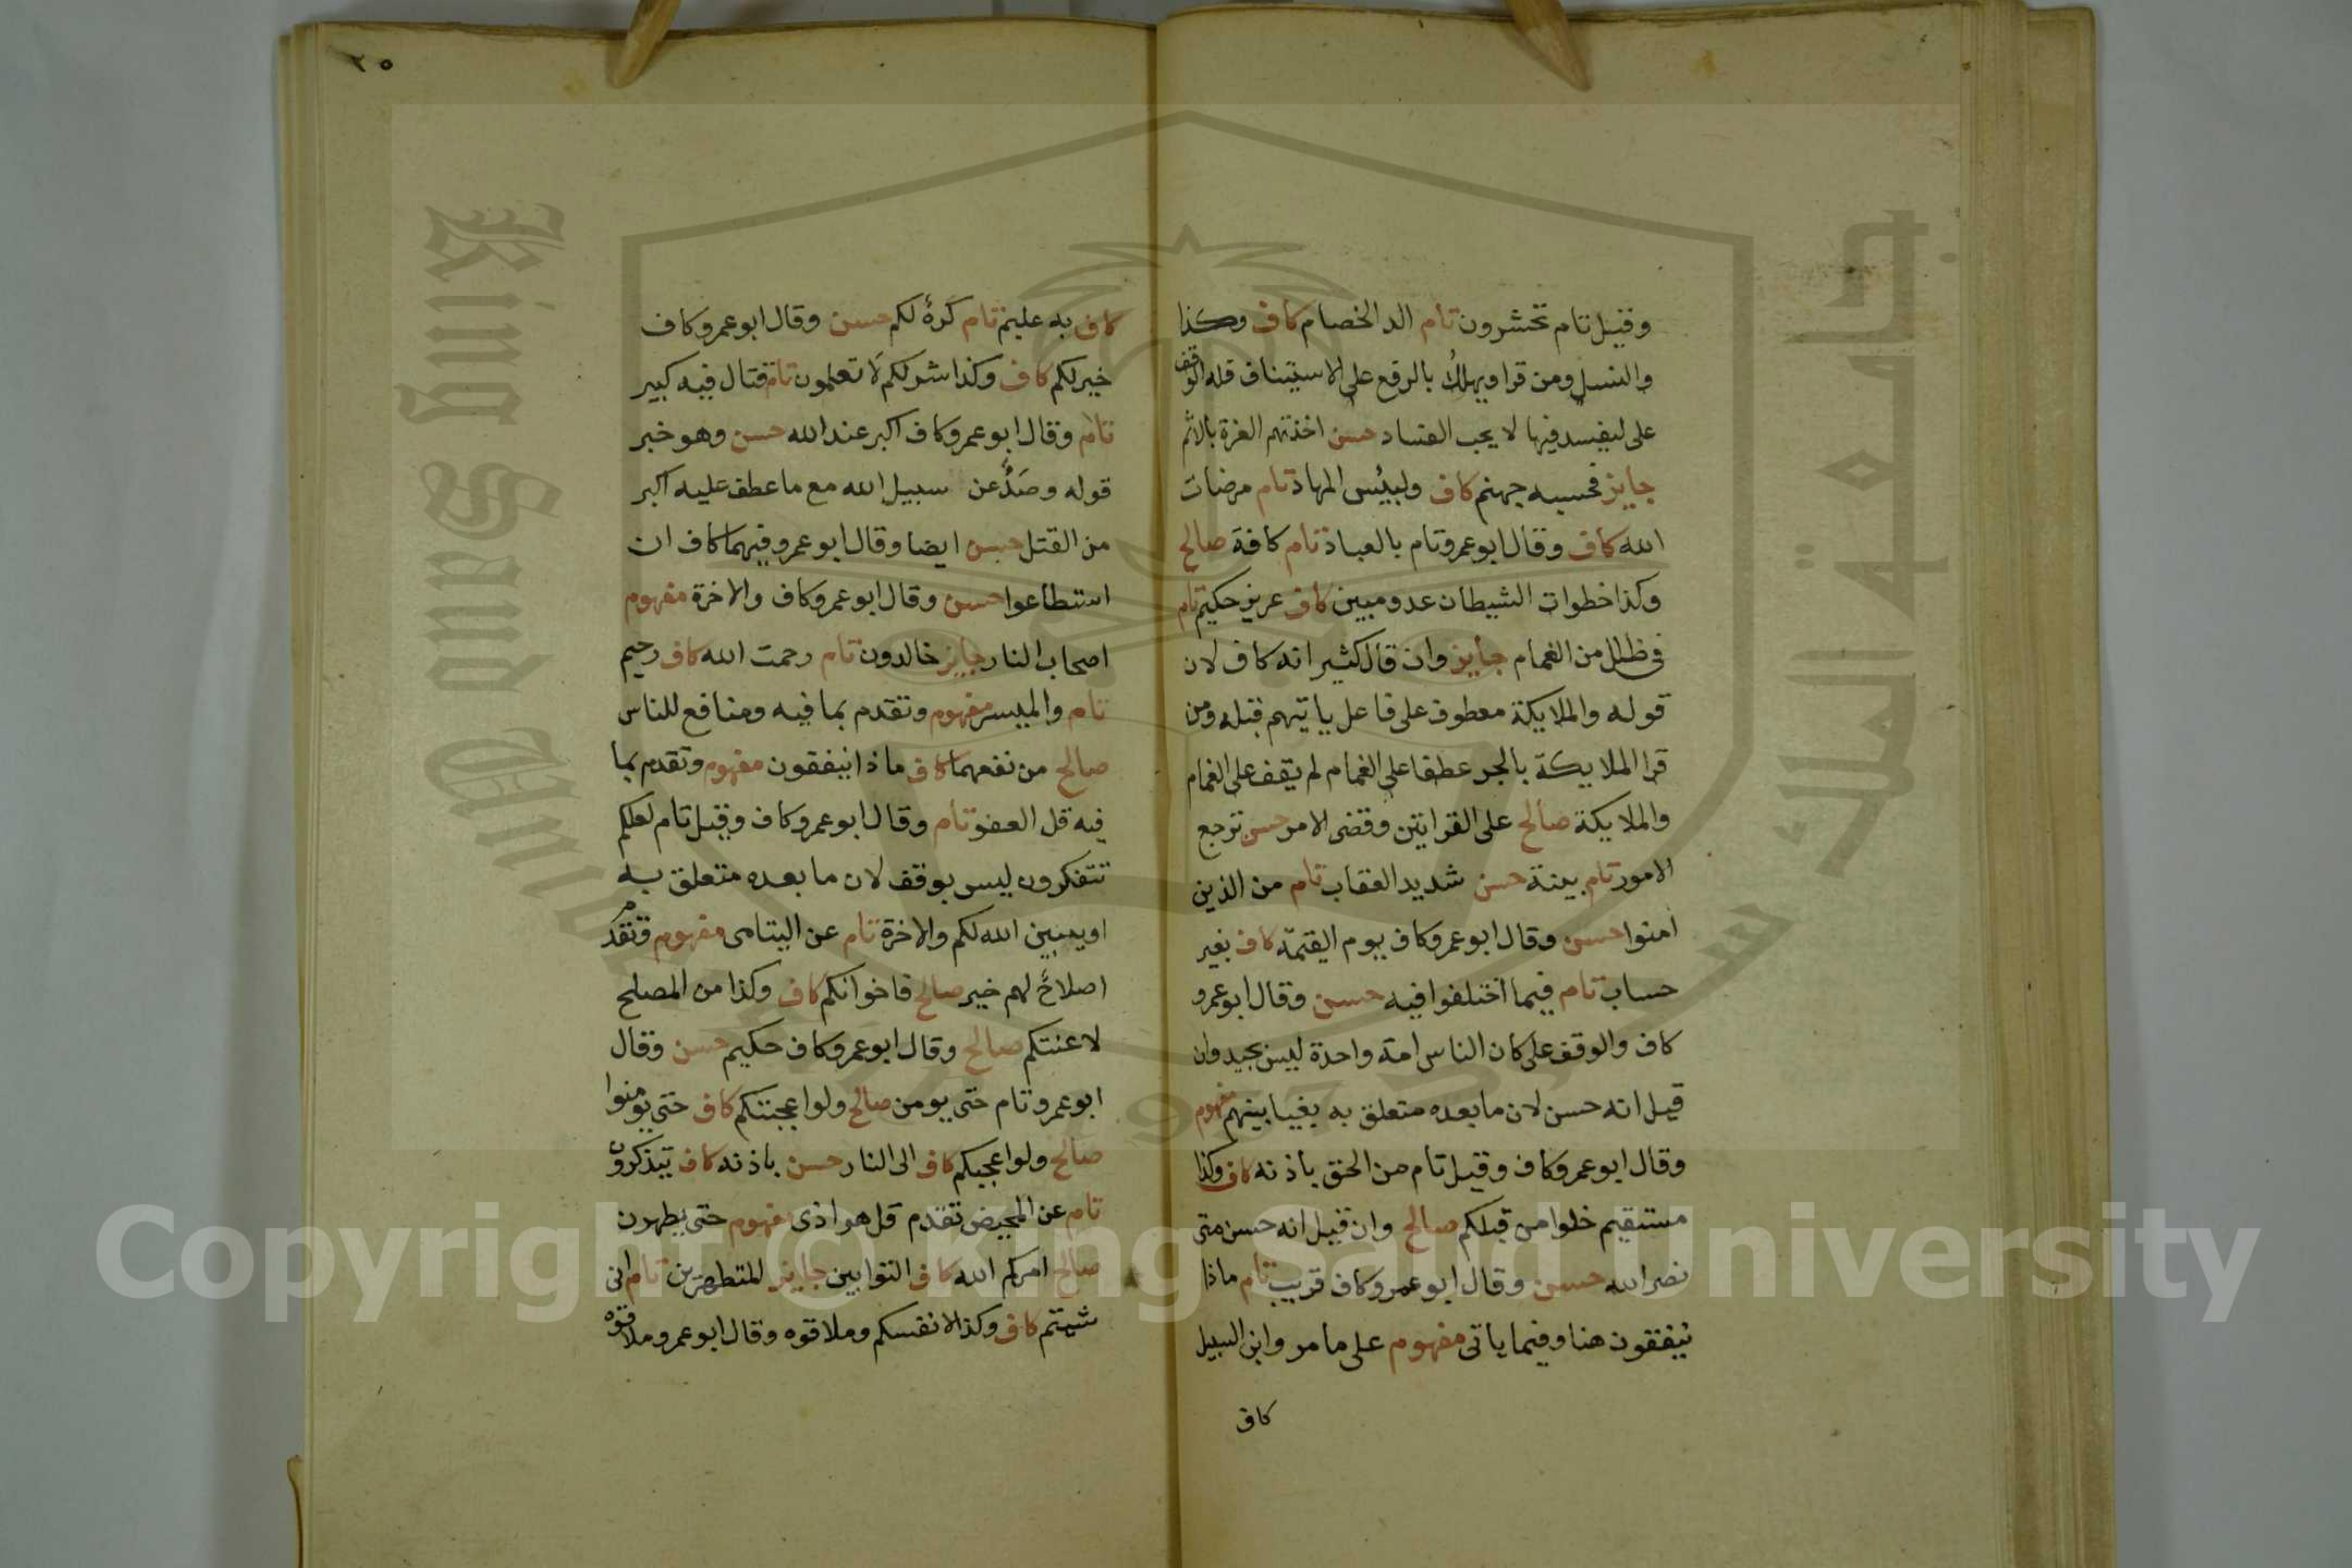 وقيل تام تحشرون تام الد الخصام كاف وكذا
والنسل ومن قرا ويهلك بالرفع على الاستيناف فله الوقف
على ليفسد فيها لا يحب الفساد حسن اخذته العزة بالاثم
جايز فحسبه جهنم كاف ولبئس المهاد تام مرضات
الله كاف وقال ابو عمرو تام بالعباد تام كافة صالح
وكذا خطوات الشيطان عدو مبين كاف عزيز حكيم تام
في ظلل من الغمام جايز وان قال كثير انه كاف لان
قوله والملايكة معطوف على فاعل ياتيهم قبله ومن
قرا الملايكة بالجر عطفا على الغمام لم يقف على الغمام
والملايكة صالح على القراتين وقضى الامر حسن ترجع
الامور تام بينة حسن شديد العقاب تام من الذين
امنوا حسن وقال ابو عمرو كاف يوم القيمة كاف بغير
حساب تام فيما اختلفوا فيه حسن وقال ابو عمرو
كاف والوقف على كان الناس امة واحدة ليس بجيد وان
قيل انه حسن لان ما بعده متعلق به بغيا بينهم مفهوم
وقال ابو عمرو كاف وقيل تام من الحق باذنه كاف وكذا
مستقيم خلوا من قبلكم صالح وان قيل انه حسن متى
نصر الله حسن وقال ابو عمرو كاف قريب تام ماذا
ينفقون هنا وفيما ياتى مفهوم على ما مر وابن السبيل
كاف
٢٥
كاف به عليم تام كره لكم حسن وقال ابو عمرو كاف
خير لكم كاف وكذا شر لكم لا تعلمون تام قتال فيه كبير
تام وقال ابو عمرو كاف اكبر عند الله حسن وهو خبر
قوله وصدٌّ عن سبيل الله مع ما عطف عليه اكبر
من القتل حسن ايضا وقال ابو عمرو فيهما كاف ان
استطاعوا حسن وقال ابو عمرو كاف والاخرة مفهوم
اصحاب النار جايز خالدون تام رحمت الله كاف رحيم
تام والميسر مفهوم وتقدم بما فيه ومنافع للناس
صالح من نفعهما كاف ماذا ينفقون مفهوم وتقدم بما
فيه قل العفو تام وقال ابو عمرو كاف وقيل تام لعلكم
تتفكرون ليس بوقف لان ما بعده متعلق به
او يبين الله لكم والاخرة تام عن اليتامى مفهوم وتقدم
اصلاح لهم خير صالح فاخوانكم كاف وكذا من المصلح
لاعنتكم صالح وقال ابو عمرو كاف حكيم حسن وقال
ابو عمرو تام حتى يومن صالح ولو اعجبتكم كاف حتى يومنوا
صالح ولو اعجبكم كاف الى النار حسن باذنه كاف يتذكرون
تام عن المحيض تقدم قل هو اذى مفهوم حتى يطهرن
صالح امركم الله كاف التوابين جايز المتطهرين تام انى
شيتم كاف وكذا لانفسكم وملاقوه وقال ابو عمرو ملاقوه
Copyright © King Saud University